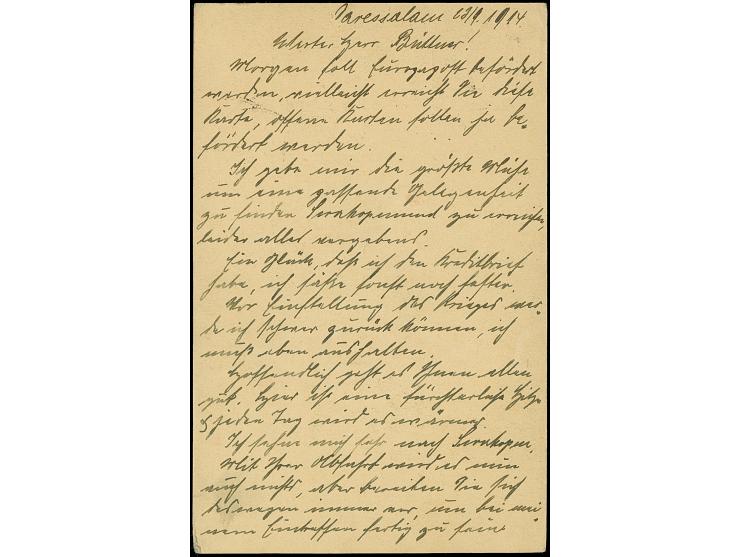 Daressalam 23/9. 1914.
Werter Herr Büttner!
Morgen soll Europapost befördert
werden, vielleicht erreicht Sie diese
Karte, offene Karten sollen ja be-
fördert werden.
Ich gebe mir die größte Mühe
um eine passende Gelegenheit
zu finden Swakopmund zu erreichen,
leider alles vergebens.
Ein Glück, daß ich den Kreditbrief
habe, ich säße sonst noch fester.
Vor Einstellung des Krieges wer-
de ich schwer zurück können, ich
muß eben aushalten.
Hoffendlich geht es Ihnen allen
gut. Hier ist eine fürchterliche Hitze
& jeden Tag wird es wärmer.
Ich sehne mich sehr nach Swakopm.
Mit Ihrer Abfahrt wird es nun
auch nichts, aber bereiten Sie sich
deswegen immer vor, um bei mei-
nem Eintreffen fertig zu sein.